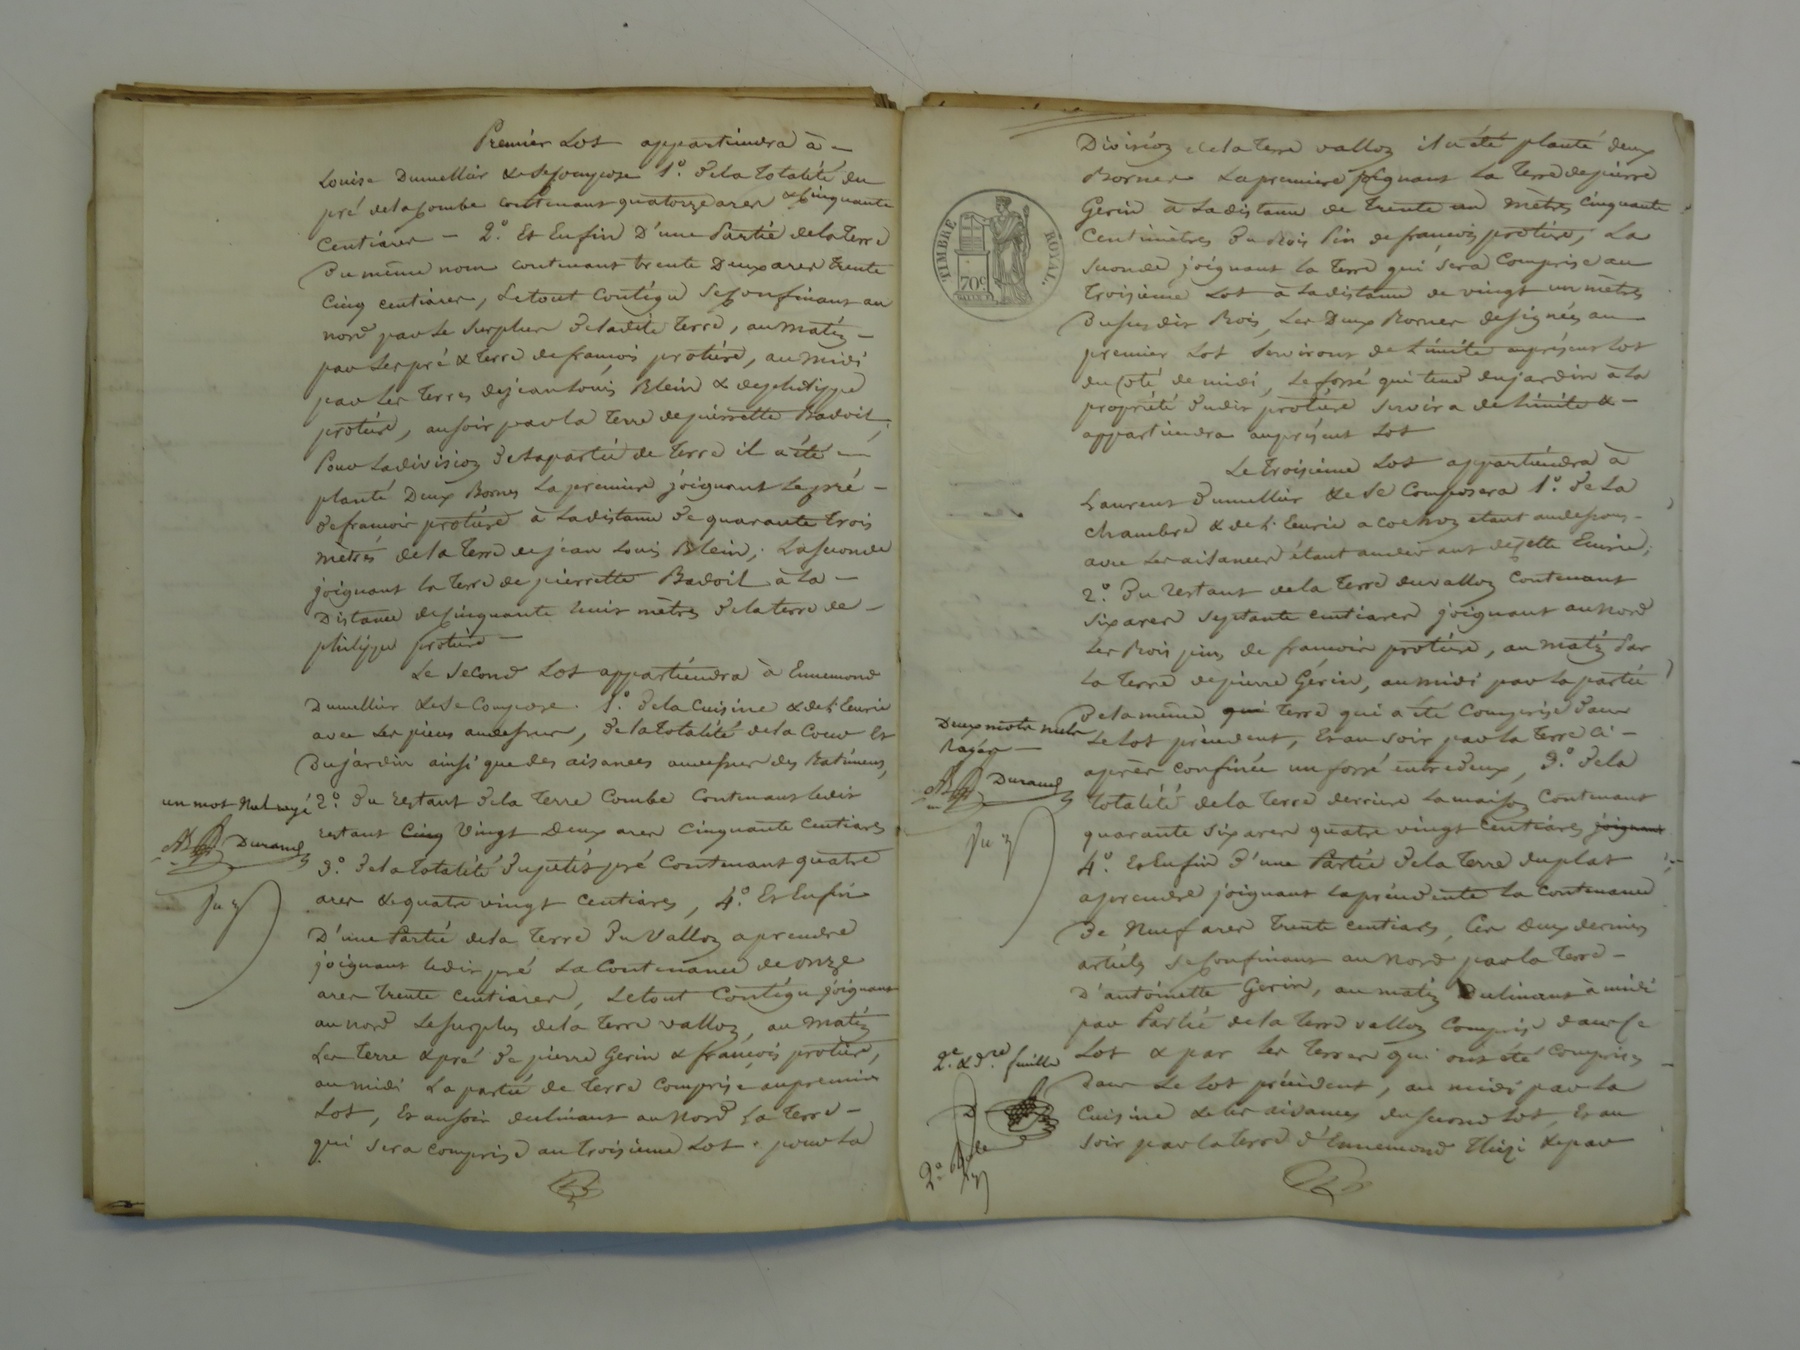 Premier Lot appartiendra à —
Louise Dumellier & Se Compose 1.º de la totalité du
pré de la Combe contenant quatorze ares & cinquante
Centiares — 2.º Et Enfin D'une Partie de la Terre
Du même nom contenant trente Deux ares trente
Cinq centiares, Le tout Contigu Se Confinant au
nord par le Surplus de la dite Terre, au matin —
par Les pré & terre de françois protière, au midi
par Les Terres de jean Louis Blein & de philippe
protière, au soir par la Terre de pierrette Badoil,
Pour La division de la partie de Terre il a été —
planté Deux Bornes La première joignant Le pré —
de françois protière à La distance de quarante trois
mètres de la Terre de jean Louis Blein, La seconde
joignant la Terre de pierrette Badoil à la —
Distance de Cinquante huit mètres de la terre de —
philippe protière —
Le Second Lot appartiendra à Ennemond
Dumellier & Se Compose. 1.º de la Cuisine & de l'Ecurie
avec Les pièces au dessus, de la totalité de la Cour Et
Du jardin ainsi que des aisances au dessus des Batimens,
un mot Nul rayé
2.º du restant de la Terre Combe Contenant ledit
restant Cinq Vingt Deux ares Cinquante Centiares
Durand
3.º de la totalité du petit pré Contenant quatre
ares & quatre vingt Centiares, 4.º Et Enfin
D'une Partie de la Terre Du Valloz a prendre
joignant ledit pré La Contenance de onze
ares trente centiares, Le tout Contigu joignant
au nord Le Surplus de la Terre valloz, au Matin
Les Terre & pré de pierre Gerin & françois protière,
au midi La partie de Terre Comprise au premier
Lot, Et au soir declinant au Nord La Terre —
qui sera comprise au troisième Lot. pour La
TIMBRE ROYAL.
70c
Division de la Terre valloz il a été planté deux
Bornes La première joignant La Terre de pierre
Gerin à La distance de trente un mètres Cinquante
Centimètres du Bois Pin de françois protière, La
seconde joignant la Terre qui sera Comprise au
troisième Lot à La distance de vingt un mètres
du susdit Bois, Les Deux Bornes designées au
premier Lot Serviront de Limite au présent Lot
du Coté de midi, Le fossé qui tend du jardin à La
propriété dudit protière Servira de Limite & —
appartiendra au présent Lot
Le Troisième Lot appartiendra à
Laurent Dumellier & Se Composera 1.º de La
chambre & de l'Ecurie a cochoz etant au dessous —
avec Les aisances étant au devant de cette Ecurie,
2.º Du Restant de la Terre du valloz Contenant
Six ares septante centiares joignant au Nord
Les Bois pins de françois protière, au matin Par
La Terre de pierre Gérin, au midi par La partie
Deux mots nuls
rayés —
de la même qui Terre qui a été Comprise dans
Le Lot précédent, Et au soir par la Terre Ci —
après confinée un fossé entredeux, 3.º de la
Durand
totalité de la Terre derrière La maison Contenant
quarante Six ares quatre vingt Centiares joignant
4.º Et Enfin D'une Partie de la Terre du plat
a prendre joignant La précédente La Contenance
De Neuf ares Trente centiares, Ces Deux derniers
articles Se Confinant au Nord par la Terre —
D'antoinette Gerin, au matin Declinant à midi
par Partie de la Terre valloz Comprise dans Ce
2.e & d.re feuille
Lot & par Les Terres qui ont été Comprises
Dans Le Lot précédent, au midi par La
Cuisine & les aisances du second Lot, Et au
Soir par la Terre d'Ennemond & par